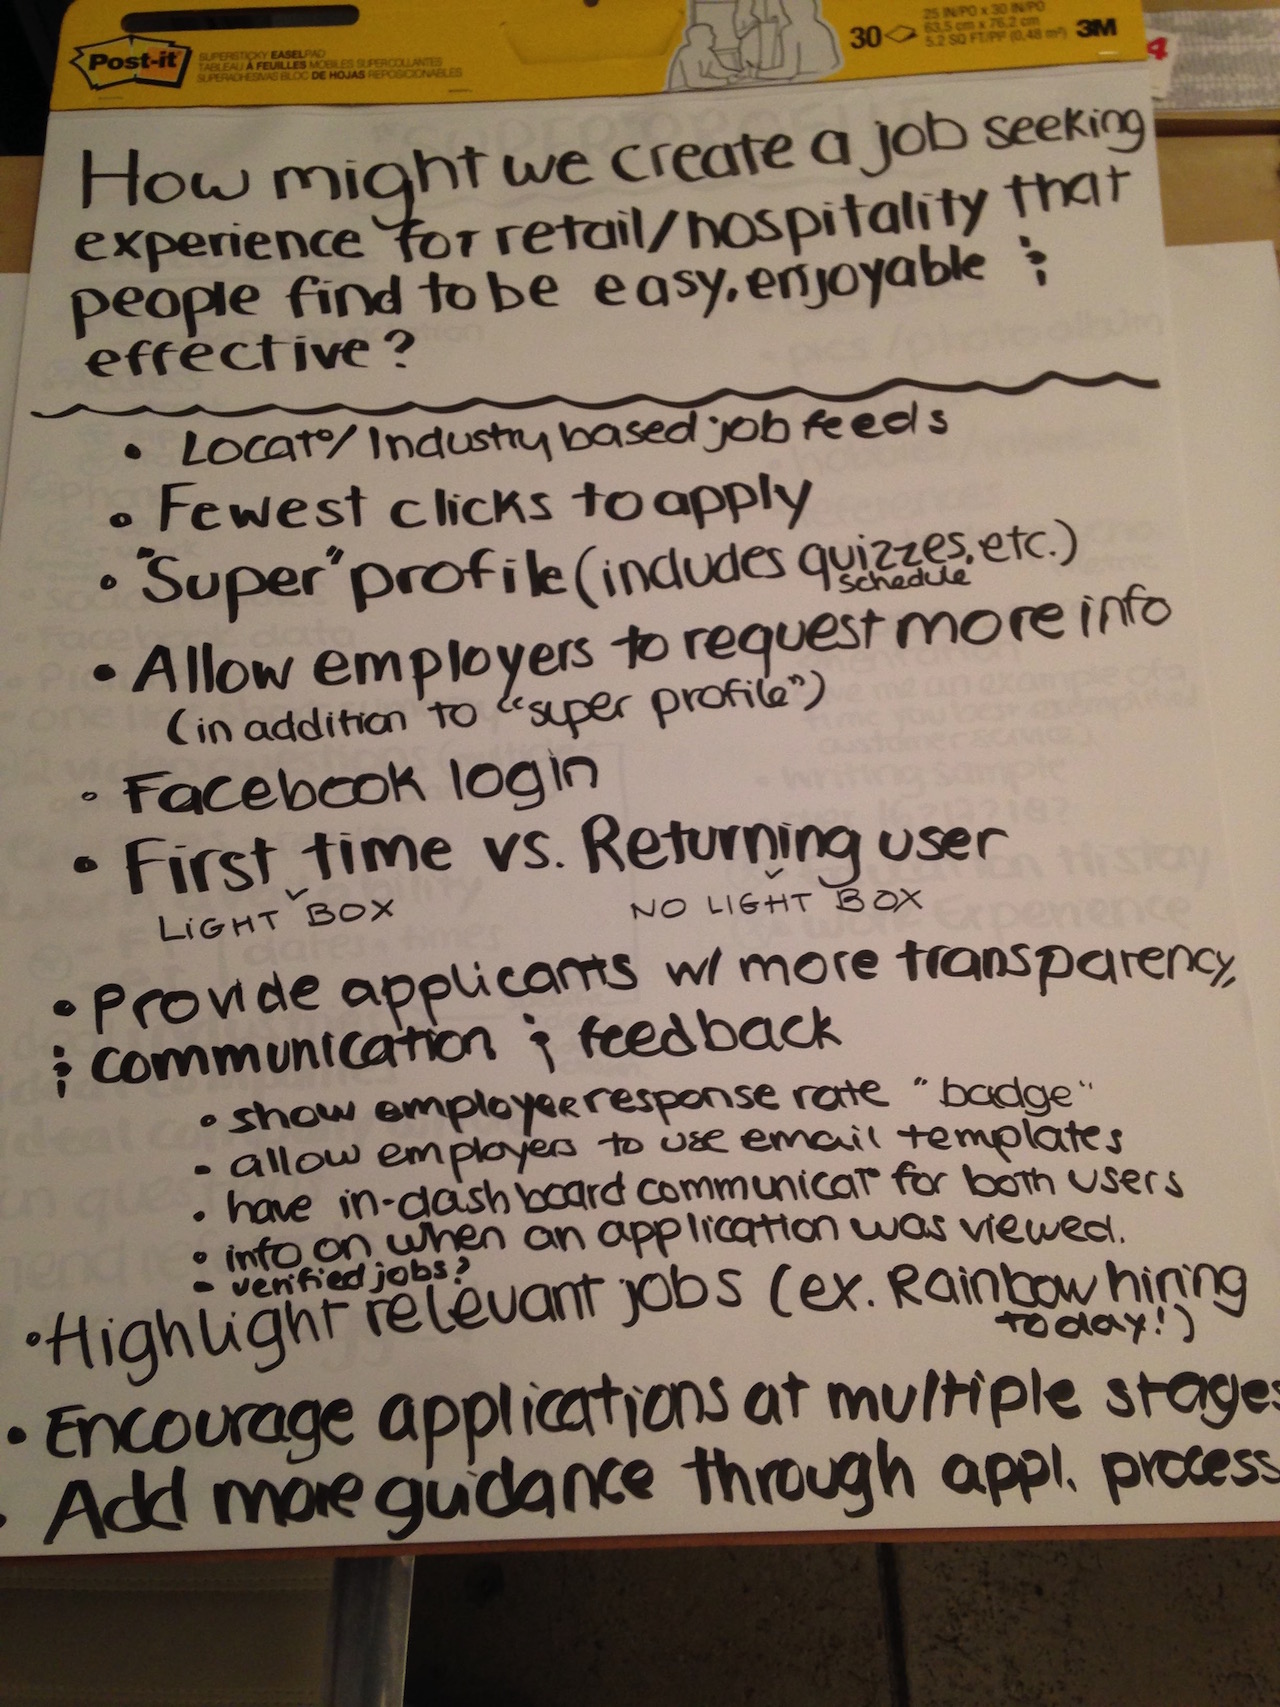 Post-it
SUPERSTICKY EASEL PAD
TABLEAU À FEUILLES MOBILES SUPERCOLLANTES
SUPERADHESIVAS BLOC DE HOJAS REPOSICIONABLES
30
25 IN/PO x 30 IN/PO
63,5 cm x 76,2 cm
5.2 SQ FT/PP (0,48 m²)
3M
How might we create a job seeking
experience for retail/hospitality that
people find to be easy, enjoyable &
effective?
• Locat°/Industry based job feeds
• Fewest clicks to apply
• "Super" profile (includes quizzes, etc.)
schedule
• Allow employers to request more info
(in addition to "super profile")
• Facebook login
• First time vs. Returning user
LIGHT BOX NO LIGHT BOX
• Provide applicants w/ more transparency,
& communication & feedback
• show employer response rate "badge"
• allow employers to use email templates
• have in-dashboard communicat° for both users
• info on when an application was viewed.
• verified jobs?
• Highlight relevant jobs (ex. Rainbow hiring
today!)
• Encourage applications at multiple stages
• Add more guidance through appl. process